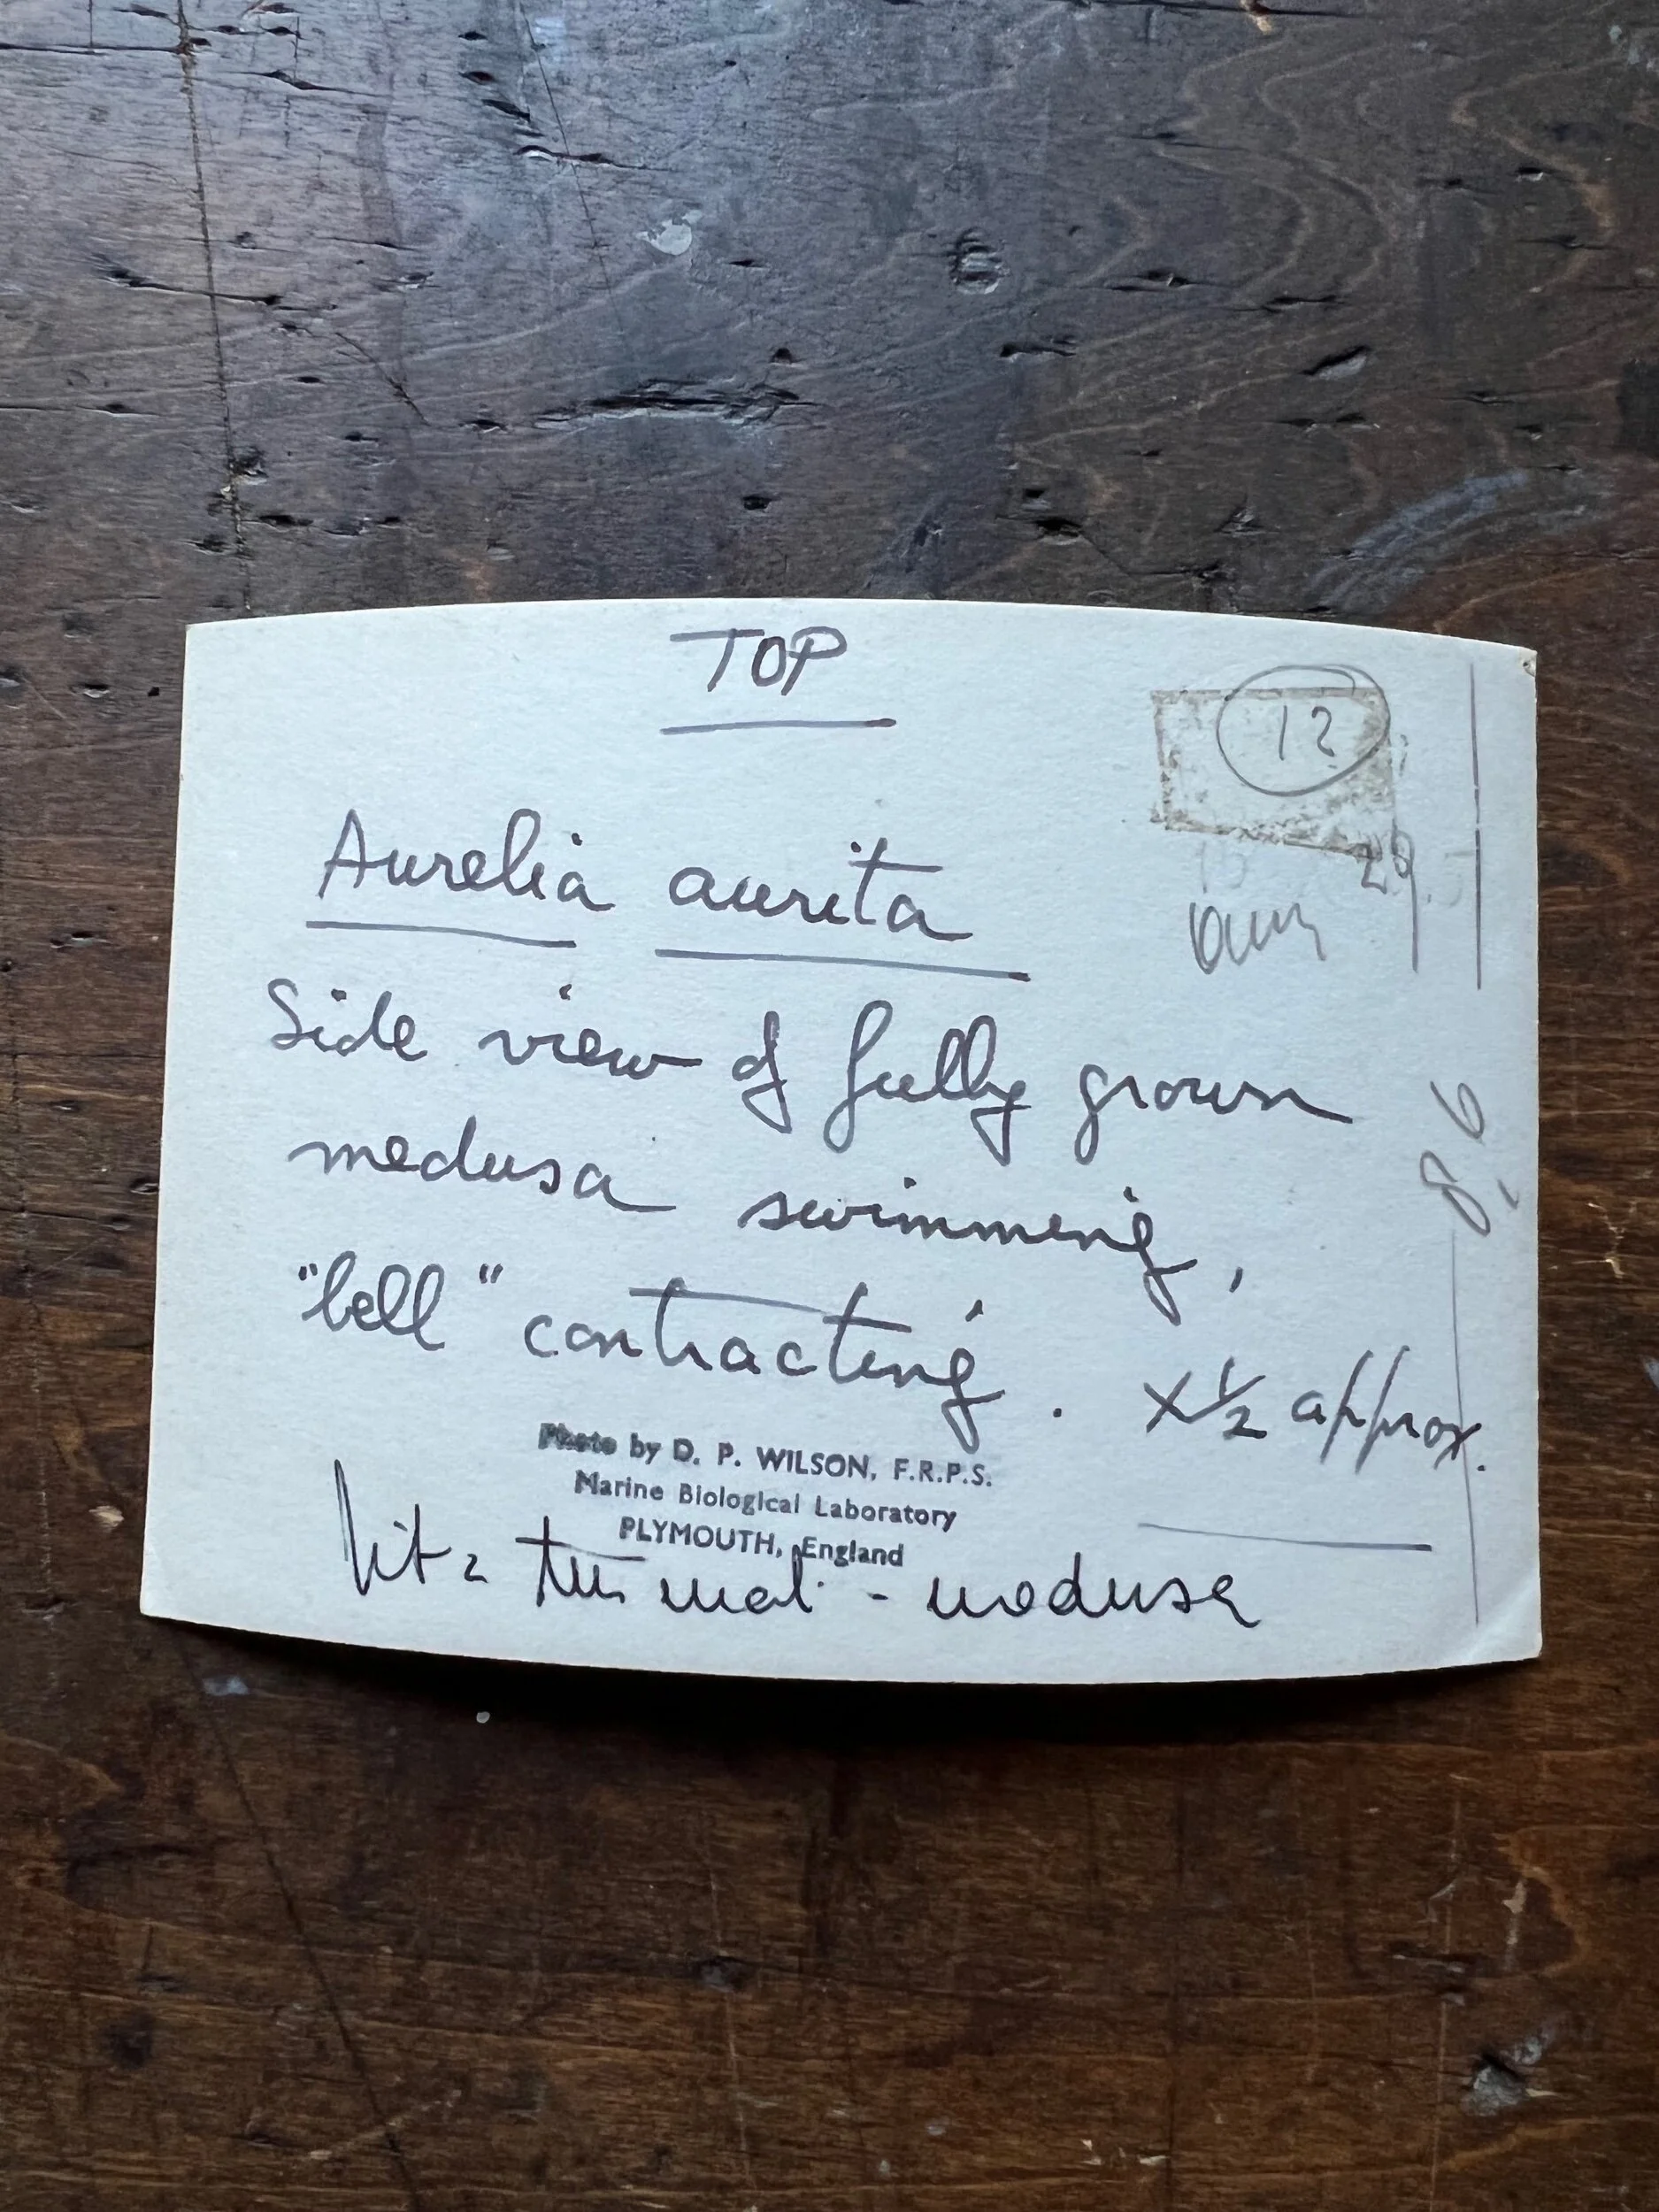 TOP
12
29
Aurelia aurita
Side view of fully grown
medusa swimming,
"bell" contracting. X ½ approx.
8,6
Photo by D. P. WILSON, F.R.P.S.
Marine Biological Laboratory
PLYMOUTH, England